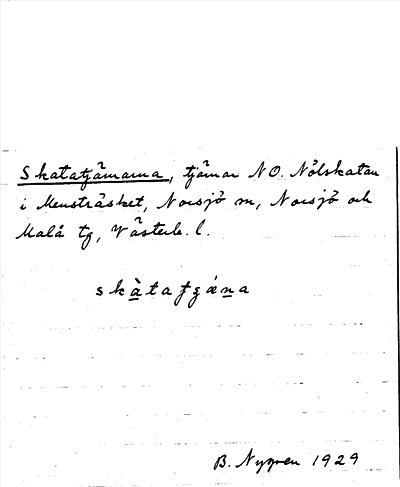 Skatatjärnarna, tjärnar NO. Nölskatan
i Mensträsket, Norsjö sn, Norsjö och
Malå tg, Västerb. l.
B. Nygren 1929